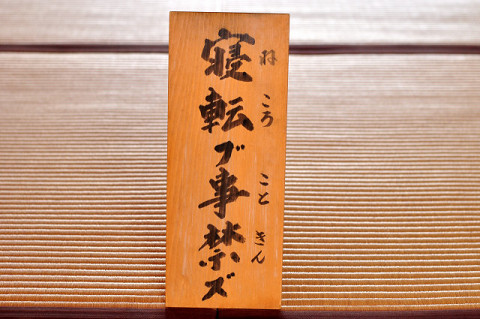 寝転ブ事禁ズ
ねころ こと きん